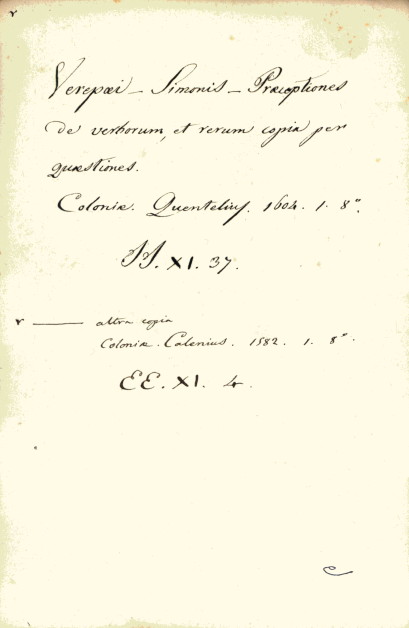 Verepæi - Simonis - Præceptiones
de verborum, et rerum copia per
quæstiones.
Coloniæ. Quentelius. 1604. 1. 8°.
XI. 37.
altra copia
Coloniæ. Calenius. 1582. 1. 8°.
EE. XI. 4.